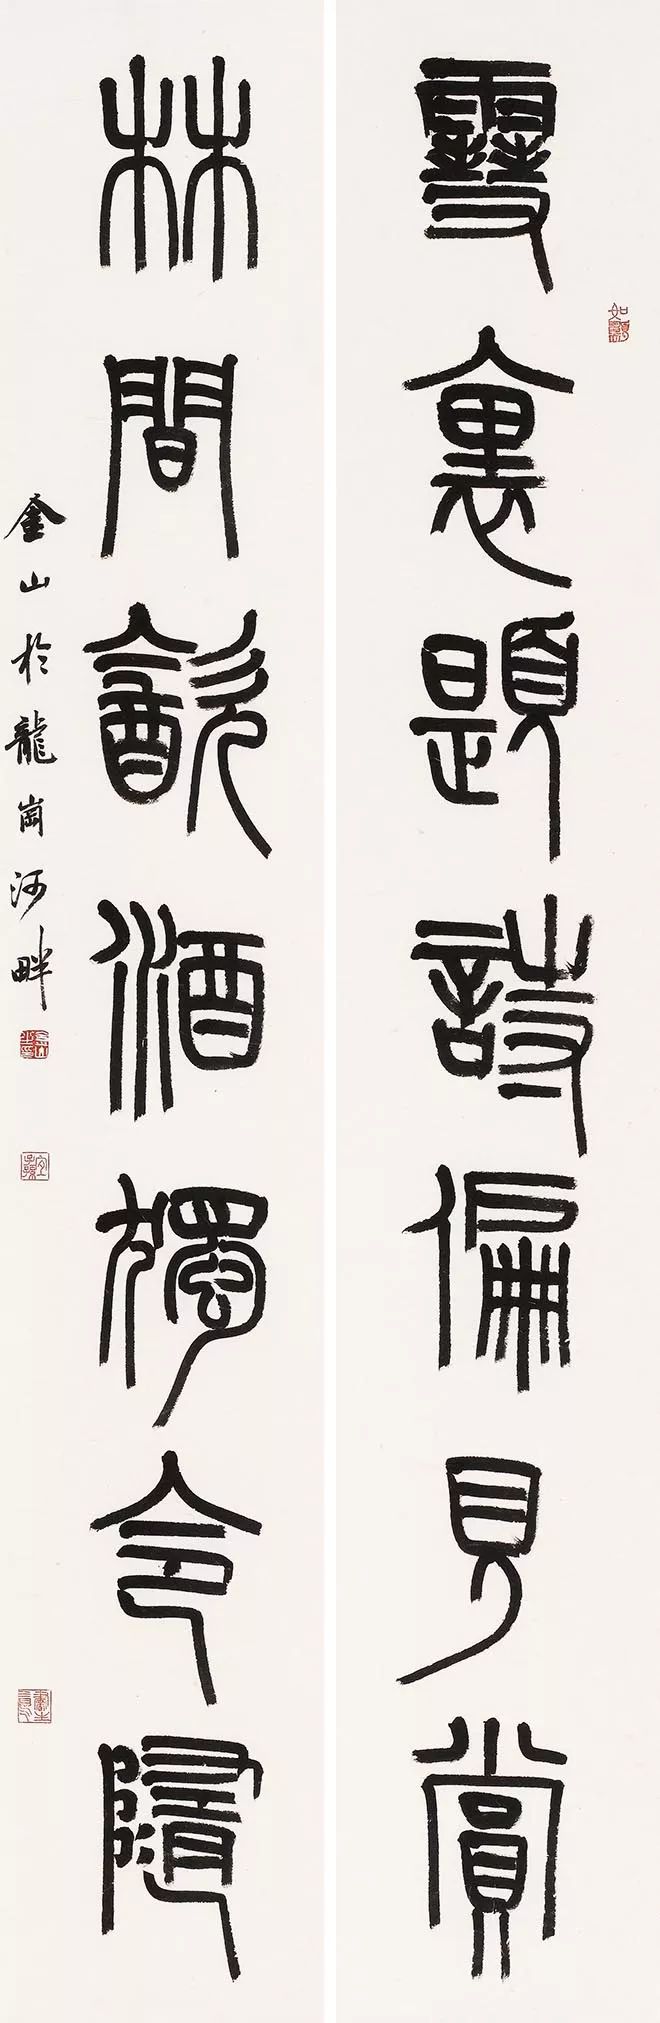 雪裏題詩偏見賞
林間飲酒獨令隨
金山於龍崗河畔